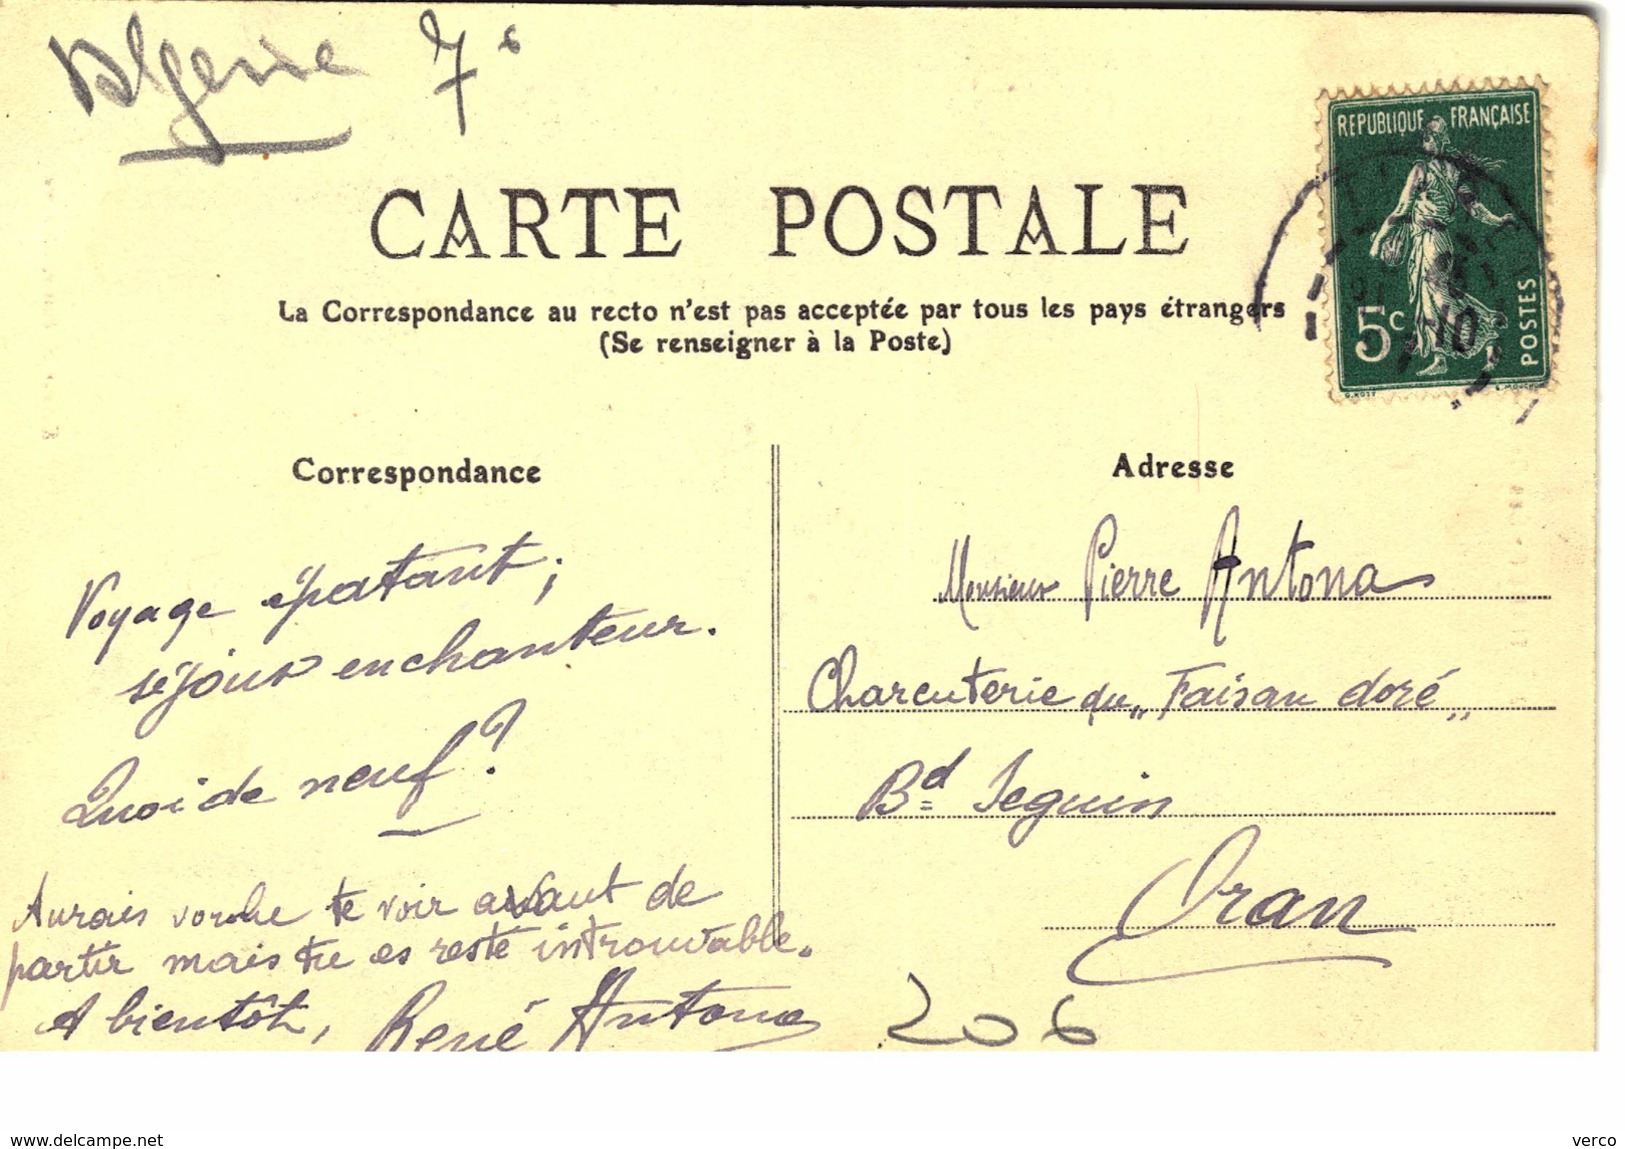 Algérie 7 6
CARTE POSTALE
La Correspondance au recto n'est pas acceptée par tous les pays étrangers
(Se renseigner à la Poste)
REPUBLIQUE FRANÇAISE
5c
POSTES
Correspondance
Voyage épatant ;
séjour enchanteur.
Quoi de neuf ?
Aurais voulu te voir avant de
partir mais tu es resté introuvable.
A bientôt, René Antona
Adresse
Monsieur Pierre Antona
Charcuterie du "Faisan doré"
Bd Seguin
Oran
206
www.delcampe.net
verco